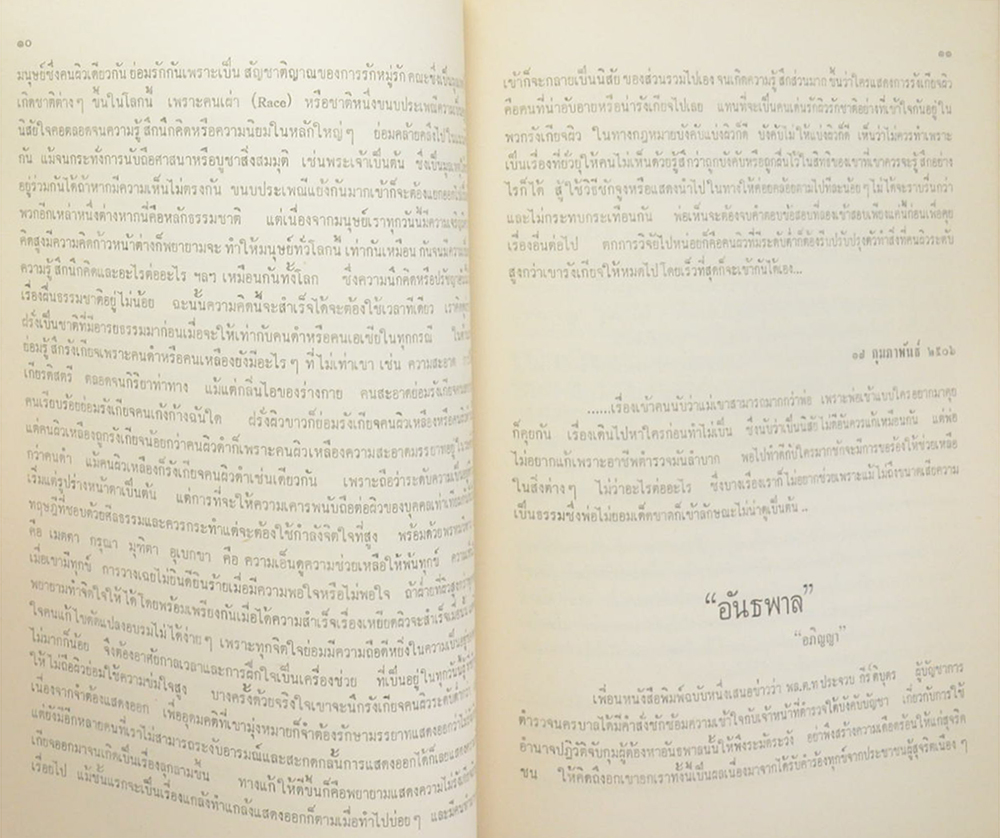 ๑๐
มนุษย์ซึ่งคนผิวเดียวกัน ย่อมรักกันเพราะเป็น สัญชาติญาณของการรักหมู่รัก คณะซึ่งเป็น
เกิดชาติต่างๆ ขึ้นในโลกนี้ เพราะคนเผ่า (Race) หรือชาติหนึ่งขนบประเพณีความ
นิสัยใจคอตลอดจนความรู้สึกนึกคิดหรือความนิยมในหลักใหญ่ๆ ย่อมคล้ายคลึงไปใน
กัน แม้จนกระทั่งการนับถือศาสนาหรือบูชาสิ่งสมมุติ เช่นพระเจ้าเป็นต้น ซึ่งเป็น
อยู่ร่วมกันได้ถ้าหากมีความเห็นไม่ตรงกัน ขนบประเพณีแย้งกันมากเข้าก็จะต้องแยกออก
พวกอีกเหล่าหนึ่งต่างหากนี่คือหลักธรรมชาติ แต่เนื่องจากมนุษย์เราทุกวันนี้มีความเจริญ
คิดสูงมีความคิดก้าวหน้าต่างก็พยายามจะ ทำให้มนุษย์ทั่วโลกนี้ เท่ากันเหมือน กันจนมีความ
ความรู้สึกนึกคิดและอะไรต่ออะไร ฯลฯ เหมือนกันทั้งโลก ซึ่งความนึกคิดหรือปรัชญา
เรื่องฝืนธรรมชาติอยู่ไม่น้อย ฉะนั้นความคิดนี้จะสำเร็จได้จะต้องใช้เวลาทีเดียว เรา
ฝรั่งเป็นชาติที่มีอารยธรรมมาก่อนเมื่อจะให้เท่ากับคนดำหรือคนเอเซียในทุกกรณี
ย่อมรู้สึกรังเกียจเพราะคนดำหรือคนเหลืองยังมีอะไรๆ ที่ไม่เท่าเขา เช่น ความสะอาด
เกียรติสตรี ตลอดจนกิริยาท่าทาง แม้แต่กลิ่นไอของร่างกาย คนสะอาดย่อมรังเกียจคน
คนเรียบร้อยย่อมรังเกียจคนเก้งก้างฉันใด ฝรั่งผิวขาวก็ย่อมรังเกียจคนผิวเหลืองหรือคนผิว
แต่คนผิวเหลืองถูกรังเกียจน้อยกว่าคนผิวดำก็เพราะคนผิวเหลืองความสะอาดมรรยาทอยู่
กว่าคนดำ แม้คนผิวเหลืองก็รังเกียจคนผิวดำเช่นเดียวกัน เพราะถือว่าระดับความเป็น
เริ่มแต่รูปร่างหน้าตาเป็นต้น แต่การที่จะให้ความเคารพนับถือต่อผิวของบุคคลเท่าเทียม
ทฤษฎีที่ชอบด้วยศีลธรรมและควรกระทำแต่จะต้องใช้กำลังจิตใจที่สูง พร้อมด้วยพรหมวิหาร
คือ เมตตา กรุณา มุทิตา อุเบกขา คือ ความเอ็นดูความช่วยเหลือให้พ้นทุกข์
เมื่อเขามีทุกข์ การวางเฉยไม่ยินดียินร้ายเมื่อมีความพอใจหรือไม่พอใจ ถ้าฝ่ายที่ผิวสูงกว่า
พยายามทำจิตใจให้ได้โดยพร้อมเพรียงกันเมื่อได้ความสำเร็จเรื่องเหยียดผิวจะสำเร็จเมื่อนั้น
ใจคนแก้ไขดัดแปลงอบรมไม่ได้ง่ายๆ เพราะทุกจิตใจย่อมมีความถือดีหยิ่งในความเป็นอยู่
ไม่มากก็น้อย จึงต้องอาศัยกาลเวลาและการฝึกใจเป็นเครื่องช่วย ที่เป็นอยู่ในทุกวันนี้
ให้ไม่ถือผิวย่อมใช้ความข่มใจสูง บางครั้งด้วยจริงใจเขาจะนึกรังเกียจคนระดับต่ำ
เนื่องจากจำต้องแสดงออก เพื่ออุดมคติที่เขามุ่งหมายก็จำต้องรักษามรรยาทแสดงออกว่าไม่
แต่ยังมีอีกหลายคนที่เราไม่สามารถระงับอารมณ์และสะกดกลั้นการแสดงออกได้ก็เลยแสดง
เกียจออกมาจนเกิดเป็นเรื่องลุกลามขึ้น ทางแก้ให้ดีขึ้นก็คือพยายามแสดงความไม่รังเกียจ
เรื่อยไป แม้ชั้นแรกจะเป็นเรื่องแกล้งทำแกล้งแสดงออกก็ตามเมื่อทำไปบ่อยๆ และมีคน
๑๑
เข้าก็จะกลายเป็นนิสัย ของส่วนรวมไปเอง จนเกิดความรู้สึกส่วนมาก ขึ้นว่าใครแสดงการรังเกียจผิว
คือคนที่น่าอับอายหรือน่ารังเกียจไปเลย แทนที่จะเป็นคนเด่นรักผิวรักชาติอย่างที่เข้าใจกันอยู่ใน
พวกรังเกียจผิว ในทางกฎหมายบังคับแบ่งผิวก็ดี บังคับไม่ให้แบ่งผิวก็ดี เห็นว่าไม่ควรทำเพราะ
เป็นเรื่องที่ยั่วยุให้คนไม่เห็นด้วยรู้สึกว่าถูกบังคับหรือถูกฝืนไว้ในสิทธิของเขาที่เขาควรจะรู้สึกอย่าง
ไรก็ได้ สู้ใช้วิธีชักจูงหรือแสดงนำไปในทางให้ค่อยคล้อยตามไปทีละน้อยๆ ไม่ได้จะราบรื่นกว่า
และไม่กระทบกระเทือนกัน พ่อเห็นจะต้องจบคำตอบข้อสอบที่ลองเข้าสอบเพียงแค่นี้ก่อนเพื่อคุย
เรื่องอื่นต่อไป ตกการวิจัยไปหน่อยก็คือคนผิวที่มีระดับต่ำก็ต้องรีบปรับปรุงตัวทำสิ่งที่คนผิวระดับ
สูงกว่าเขารังเกียจให้หมดไป โดยเร็วที่สุดก็จะเข้ากันได้เอง...
๑๘ กุมภาพันธ์ ๒๕๐๖
......เรื่องเข้าคนนับว่าแม่เขาสามารถมากกว่าพ่อ เพราะพ่อเข้าแบบใครอยากมาคุย
ก็คุยกัน เรื่องเดินไปหาใครก่อนทำไม่เป็น ซึ่งนับว่าเป็นนิสัยไม่ดีอันควรแก้เหมือนกัน แต่พ่อ
ไม่อยากแก้เพราะอาชีพตำรวจมันลำบาก พอไปทำดีกับใครมากชักจะมีการขอร้องให้ช่วยเหลือ
ในสิ่งต่างๆ ไม่ว่าอะไรต่ออะไร ซึ่งบางเรื่องเราก็ไม่อยากช่วยเพราะแม้ไม่ถึงขนาดเสียความ
เป็นธรรมซึ่งพ่อไม่ยอมเด็ดขาดก็เข้าลักษณะไม่น่าดูเป็นต้น..
“อันธพาล”
“อภิญญา”
เพื่อนหนังสือพิมพ์ฉบับหนึ่งเสนอข่าวว่า พล.ต.ท ประจวบ กีรติบุตร ผู้บัญชาการ
ตำรวจนครบาลได้มีคำสั่งซักซ้อมความเข้าใจกับเจ้าหน้าที่ตำรวจใต้บังคับบัญชา เกี่ยวกับการใช้
อำนาจปฏิบัติจับกุมผู้ต้องหาอันธพาลนั้นให้พึงระมัดระวัง อย่าพึงสร้างความเดือดร้อนให้แก่สุจริต
ชน ให้คิดถึงอกเขาอกเราทั้งนี้เป็นผลเนื่องมาจากได้รับคำร้องทุกข์จากประชาชนผู้สุจริตเนืองๆ